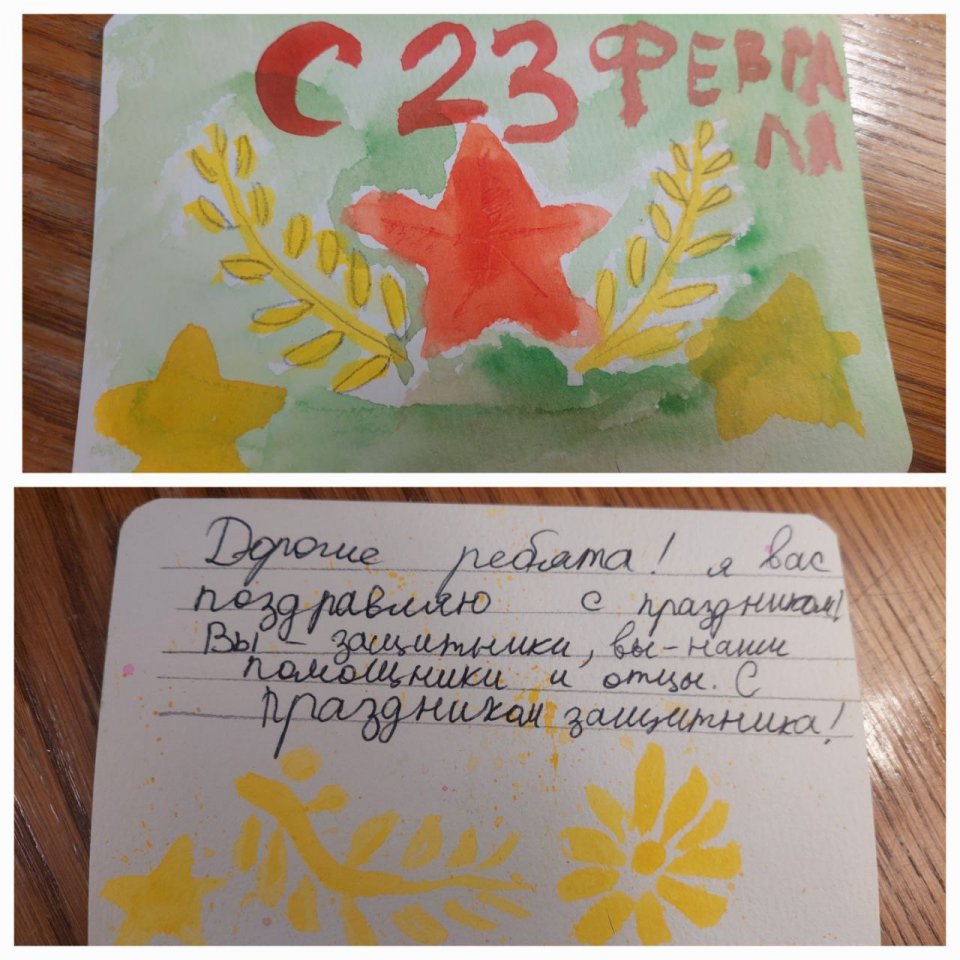 С 23 ФЕВРА
ЛЯ
Дорогие ребята! я вас
поздравляю с праздником!
Вы - защитники, вы - наши
помощники и отцы. С
праздником защитника!